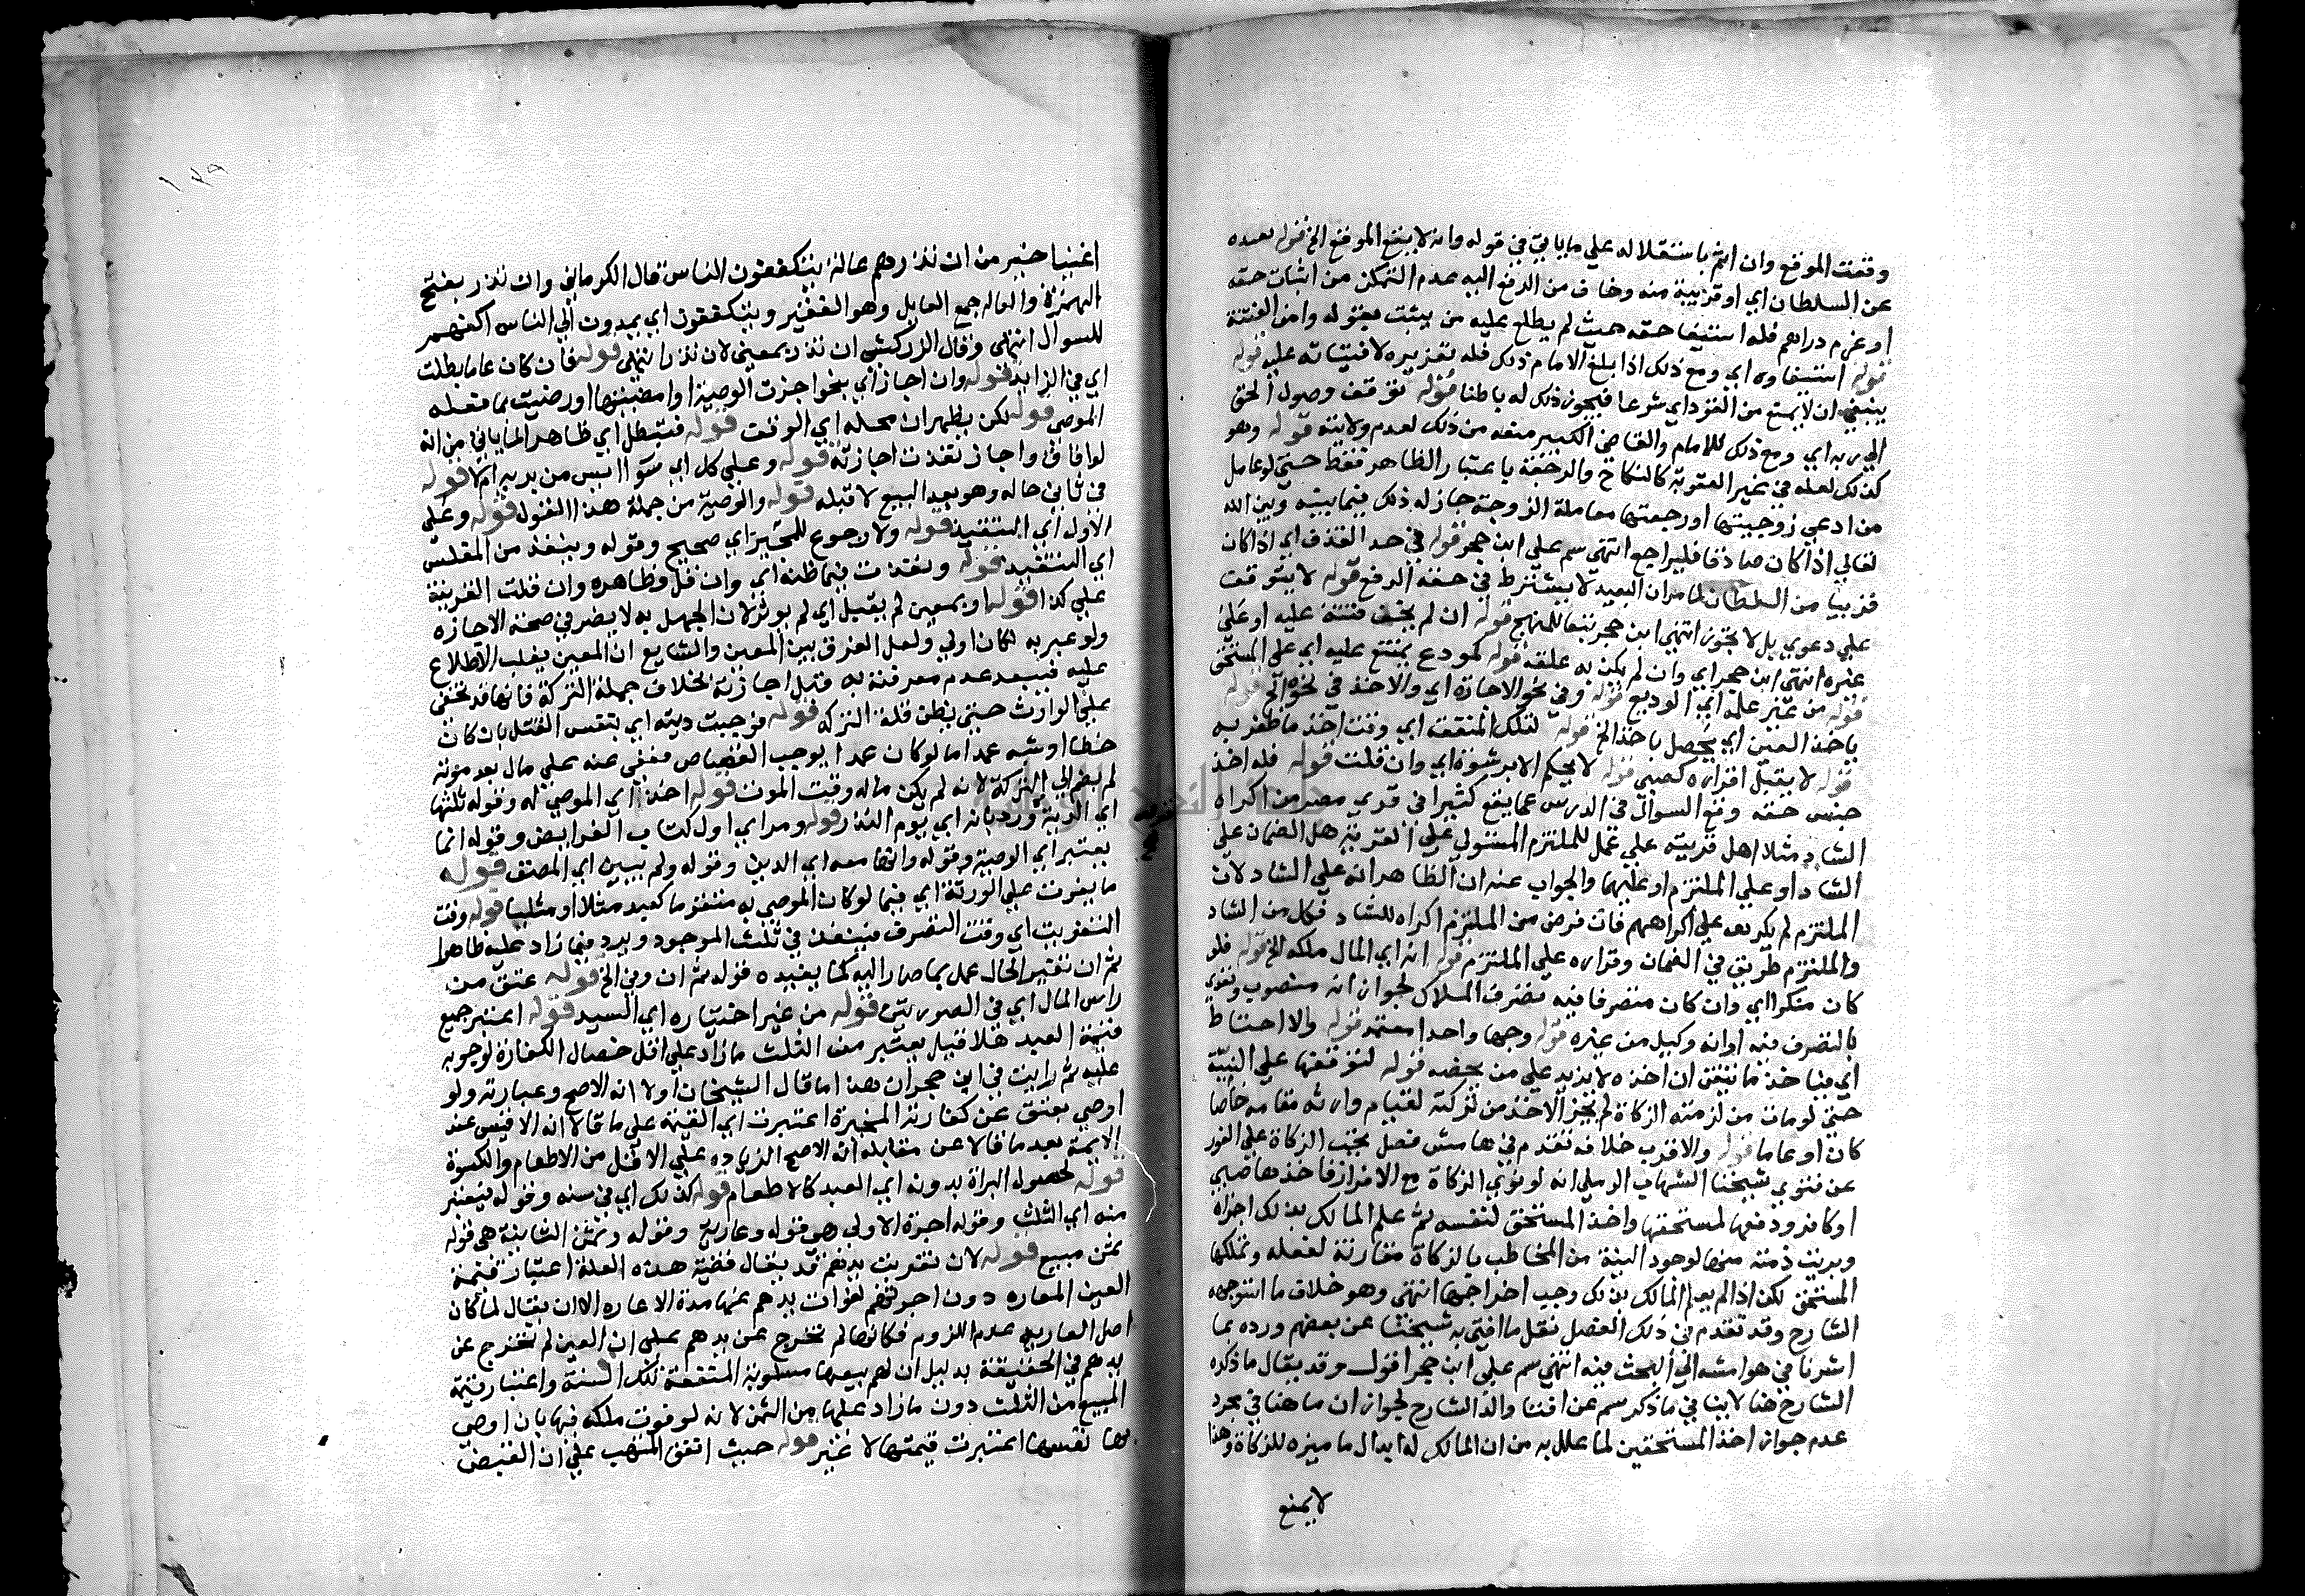 وقعت الموقع وان اثم باستقلاله علي ما ياتي في قوله وانه لا يقع الموقع الخ قوله بعيده
عن السلطان اي او قريبة منه وخاف من الرفع اليه عدم التمكن من اثبات حقه
او غرم دراهم فله استيفا حقه حيث لم يطلع عليه من يثبت بقوله وامن الفتنة
قوله استيفاوه اي ومع ذلك اذا بلغ الامام ذلك فله تعزيره لافتياته عليه قوله
ينبغي ان لا يمتنع من القود اي شرعا فيجوز ذلك له باطنا قوله توقف وصول الحق
الي ربه اي ومع ذلك للامام والقاضي الكبير منعه من ذلك لعدم ولايته قوله وهو
كذلك لعله في غير العقوبة كالنكاح والرجعة باعتبار الظاهر فقط حتي لو عامل
من ادعي زوجيتها او رجعتها معاملة الزوجة جاز له ذلك فيما بينه وبين الله
تعالي اذا كان صادقا فليراجع انتهي سم علي ابن حجر قوله في حد القذف اي اذا كان
قريبا من السلطان لما مر ان البعيد لا يشترط في حقه الرفع قوله لا يتوقف
علي دعوي بل لا تجوز انتهي ابن حجر تبعا للمنهج قوله ان لم يخف فتنة عليه او علي
غيره انتهي ابن حجر اي وان لم يكن به علقة قوله كمودع يمتنع عليه اي علي المستحق
قوله من غير علمه اي الوديع قوله وفي نحو الاجارة اي والاخذ في نحوه الخ قوله
ياخذ العين اي يحصل باخذ الخ قوله لتلك المنفعة اي وقت اخذ ما ظفر به
قوله لا يقبل اقراره كصبي قوله لا يحكم الا برشوة اي وان قلت قوله فله اخذ
جنس حقه وقع السوال في الدرس عما يقع كثيرا في قري مصر من اكراه
الشاد مثلا اهل قريته علي عمل للملتزم المستولي علي القرية هل الضمان علي
الشاد او علي الملتزم او عليهما والجواب عنه ان الظاهر انه علي الشاد لان
الملتزم لم يكرهه علي اكراههم فان فرض من الملتزم اكراه للشاد فكل من الشاد
والملتزم طريق في الضمان وقراره علي الملتزم قوله انه اي المال ملكه الخ قوله فلو
كان منكرا اي وان كان متصرفا فيه تصرف الملاك لجواز انه مغصوب ونحوي
بالتصرف فيه او انه وكيل من غيره قوله وجها واحدا معتمد قوله والا احتاط
اي فياخذ ما تيقن ان اخذه لا يزيد علي من يخصه قوله لتوقفها علي النية
حتي لو مات من لزمته الزكاة لم يجز الاخذ من تركته لقيام وارثه مقامه خاصا
كان او عاما قوله والاقرب خلافه تقدم في هامش فصل تجب الزكاة علي الفور
عن فتوي شيخنا الشهاب الرملي انه لو نوي الزكاة مع الافراز فاخذها صبي
او كافر ودفعها لمستحقها واخذ المستحق لنفسه ثم علم المالك بذلك اجزاه
وبريت ذمته منها لوجود النية من المخاطب بالزكاة مقارنة لفعله وتملكها
المستحق لكن اذا لم يعلم المالك بذلك وجب اخراجها انتهي وهو خلاف ما استوجهه
الشارح وقد تقدم في ذلك الفصل نقل ما افتي به شيخنا عن بعضهم ورده بما
اشرنا في هوامشه الي البحث فيه انتهي سم علي ابن حجر اقول وقد يقال ما ذكره
الشارح هنا لا ينافي ما ذكر سم عن افتا والد الشارح لجواز ان ما هنا في مجرد
عدم جواز اخذ المستحقين لما علل به من ان المالك له ابدال ما ميزه للزكاة وهذا
لا يمنع
اغنيا خير من ان تذرهم عالة يتكففون الناس قال الكرماني وان تذر بفتح
الهمزة والعاله جمع العايل وهو الفقير ويتكففون اي يمدون الي الناس اكفهم
للسوال انتهي وقال الزركشي ان تذر بمعني لان تذر انتهي قوله فان كان عاما بطلت
اي في الزايد قوله وان اجاز اي بنحو اجزت الوصية او امضيتها او رضيت بما فعله
الموصي قوله لكن يظهر ان محله اي الوقت قوله فتبطل اي ظاهرا لما ياتي من انه
لو افاق واجاز نفذت اجازته قوله وعلي كل اي سوا اليس من برئه ام لا قوله
في ثاني حاله وهو بعد البيع لا قبله قوله والوصية من جملة هذا القول قوله وعلي
الاول اي التنفيذ قوله ولا رجوع للمجيز اي صحيح وقوله وينفذ من المفلس
اي التنفيذ قوله ونفذت فيما ظنه اي وان قل وظاهره وان قلت القرينة
علي كذا قوله او بمعين لم يقبل اي لم يوثر لان الجهل به لا يضر في صحة الاجازه
ولو عبر به لكان اولي ولعل الفرق بين المعين والشايع ان المعين يغلب الاطلاع
عليه فيبعد عدم معرفته به قبل اجازته بخلاف جملة التركة فانها قد تخفي
علي الوارث حتي يظن قلة التركه قوله فوجبت ديته اي بنفس القتل بان كان
خطا او شبه عمد اما لو كان عمدا يوجب القصاص فعفي عنه علي مال بعد موته
لم يضم الي التركة لانه لم يكن ماله وقت الموت قوله اخذ اي الموصي له وقوله ثلثها
اي الدية ورد بانه اي يوم النذر قوله ومر اي اول كتاب الفرايض وقوله انما
يعتبر اي الوصية وقوله وانها معه اي الدين وقوله ولم يبين اي المصنف قوله
ما يفوت علي الورثة اي فيما لو كان الموصي به متقوما كعبد مثلا او مثليا قوله وقت
التفويت اي وقت التصرف فينفذ في ثلث الموجود ويرد فيما زاد عليه ظاهرا
ثم ان تغير الحال عمل بما صار اليه كما يفيده قوله ثم ان وفي الخ قوله عتق من
راس المال اي في الصورتين قوله من غير اختياره اي السيد قوله اعتبر جميع
قيمة العبد هلا قيل يعتبر من الثلث ما زاد علي اقل خصال الكفارة لوجوبه
عليه ثم رايت في ابن حجر ان هذا ما قال الشيخان اولا انه الاصح وعبارته ولو
اوصي بعتق عن كفارته المخيرة اعتبرت اي القيمة علي ما قالا انه الاقيس عند
الايمة بعد ما قالا عن مقابله انه الاصح الزياده علي الاقل من الاطعام والكسوة
قوله لحصول البراة بدونه اي العبد كالاطعام قوله كذلك اي في سنه وقوله فيعتبر
منه اي الثلث وقوله اجرة الاولي هي قوله وعارية وقوله وثمن الثانية هي قوله
ثمن مبيع قوله لان تفويت يدهم قد يقال قضية هذه العلة اعتبار قيمة
العين المعاره دون اجرتهم لفوات يدهم عنها مدة الاعاره الا ان يقال لما كان
اصل العارية عدم اللزوم فكانها لم تخرج عن يدهم علي ان العين لم تخرج عن
يدهم في الحقيقة بدليل ان لهم بيعها مسلوبة المنفعة تلك السنة واعتبار قيمة
المبيع من الثلث دون ما زاد عليها من الثمن لانه لو فوت ملكه فيها بان اوصي
بها نفسها اعتبرت قيمتها لا غير قوله حيث اتفق المتهب علي ان القبض